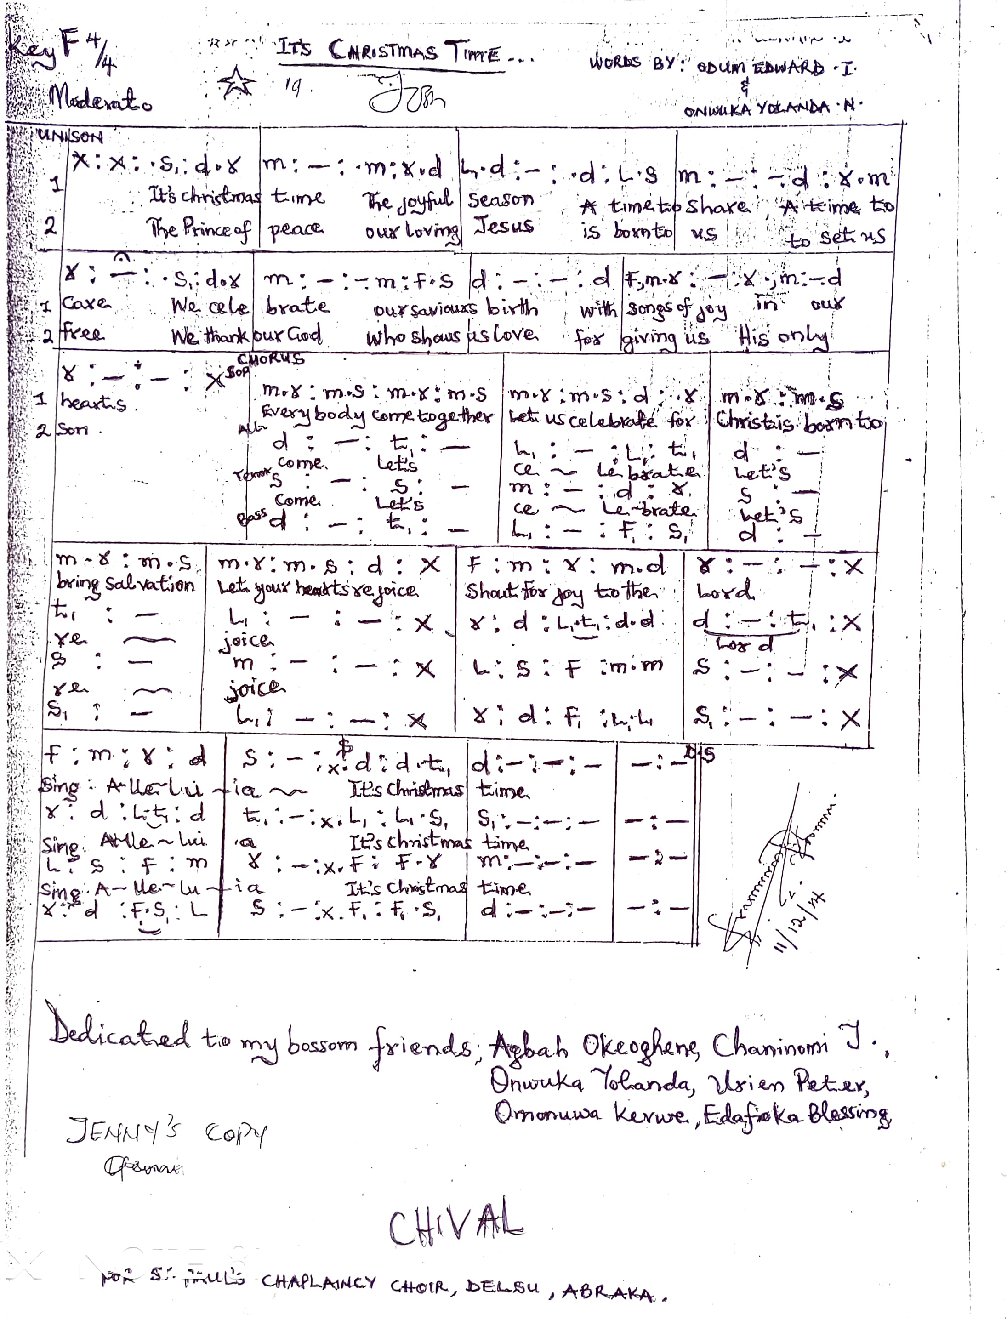 Key F 4/4
IT'S CHRISTMAS TIME...
WORDS BY: ODUM EDWARD . I.
&
ONWUKA YOLANDA . N.
Moderato
19
UNISON
x : x : . s, : d . r | m : — : . m : r . d | L, . d : — : . d : L . s | m : — : — . d : r . m
1 It's christmas time The joyful season A time to share A time to
2 The Prince of peace our loving Jesus is born to us to set us
r : — : . s, : d . r | m : — : — m : f . s | d : — : — : d | F, m . r : — : r . , m : — d
1 care We cele brate our saviours birth with songs of joy in our
2 free We thank our God who shows us love for giving us His only
CHORUS
r : — : — : x
SOP m . r : m . s : m . r : m . s | m . r : m . s : d : r | m . r : m . s
1 hearts Everybody come together Let us celebrate for Christ is born to
2 Son
Alto d : — : t, : — | L, : — : L, : t, | d : —
come Let's ce ~ le brate Let's
Tenor s : — : s : — | m : — : d : r | s : —
come Let's ce ~ le-brate Let's
Bass d : — : t, : — | L, : — : F, : S, | d : —
m . r : m . s | m . r : m . s : d : x | F : m : r : m . d | r : — : — : x
bring salvation Let your hearts rejoice Shout for joy to the Lord
t, : — | L, : — : — : x | r : d : L, . t, : d . d | d : — : t, : x
re ~ joice Lord
s : — | m : — : — : x | L : s : F : m . m | s : — : — : x
re ~ joice
s, : — | L, : — : — : x | r : d : F, : L, . L, | s, : — : — : x
f : m : r : d | s : — : x . d : d . t, | d : — : — : — | — : — D S
Sing : A-lle-lu-ia ~ It's Christmas time
r : d : L, . t, : d | t, : — : x . L, : L, . s, | s, : — : — : — | — : —
Sing : A-lle~lui a It's christmas time
L : s : f : m | r : — : x . F : F . r | m : — : — : — | — : —
Sing : A-lle~lu-ia It's christmas time
r : d : F, . S, : L | s : — : x . F, : F, . s, | d : — : — : — | — : —
11/12/14
Dedicated to my bossom friends, Agbah Okeoghene, Chaninomi J.,
Onwuka Yolanda, Urien Peter,
Omonuwa Kerwe, Edafioka Blessing
JENNY'S COPY
CHIVAL
FOR ST. PAUL'S CHAPLAINCY CHOIR, DELSU, ABRAKA.